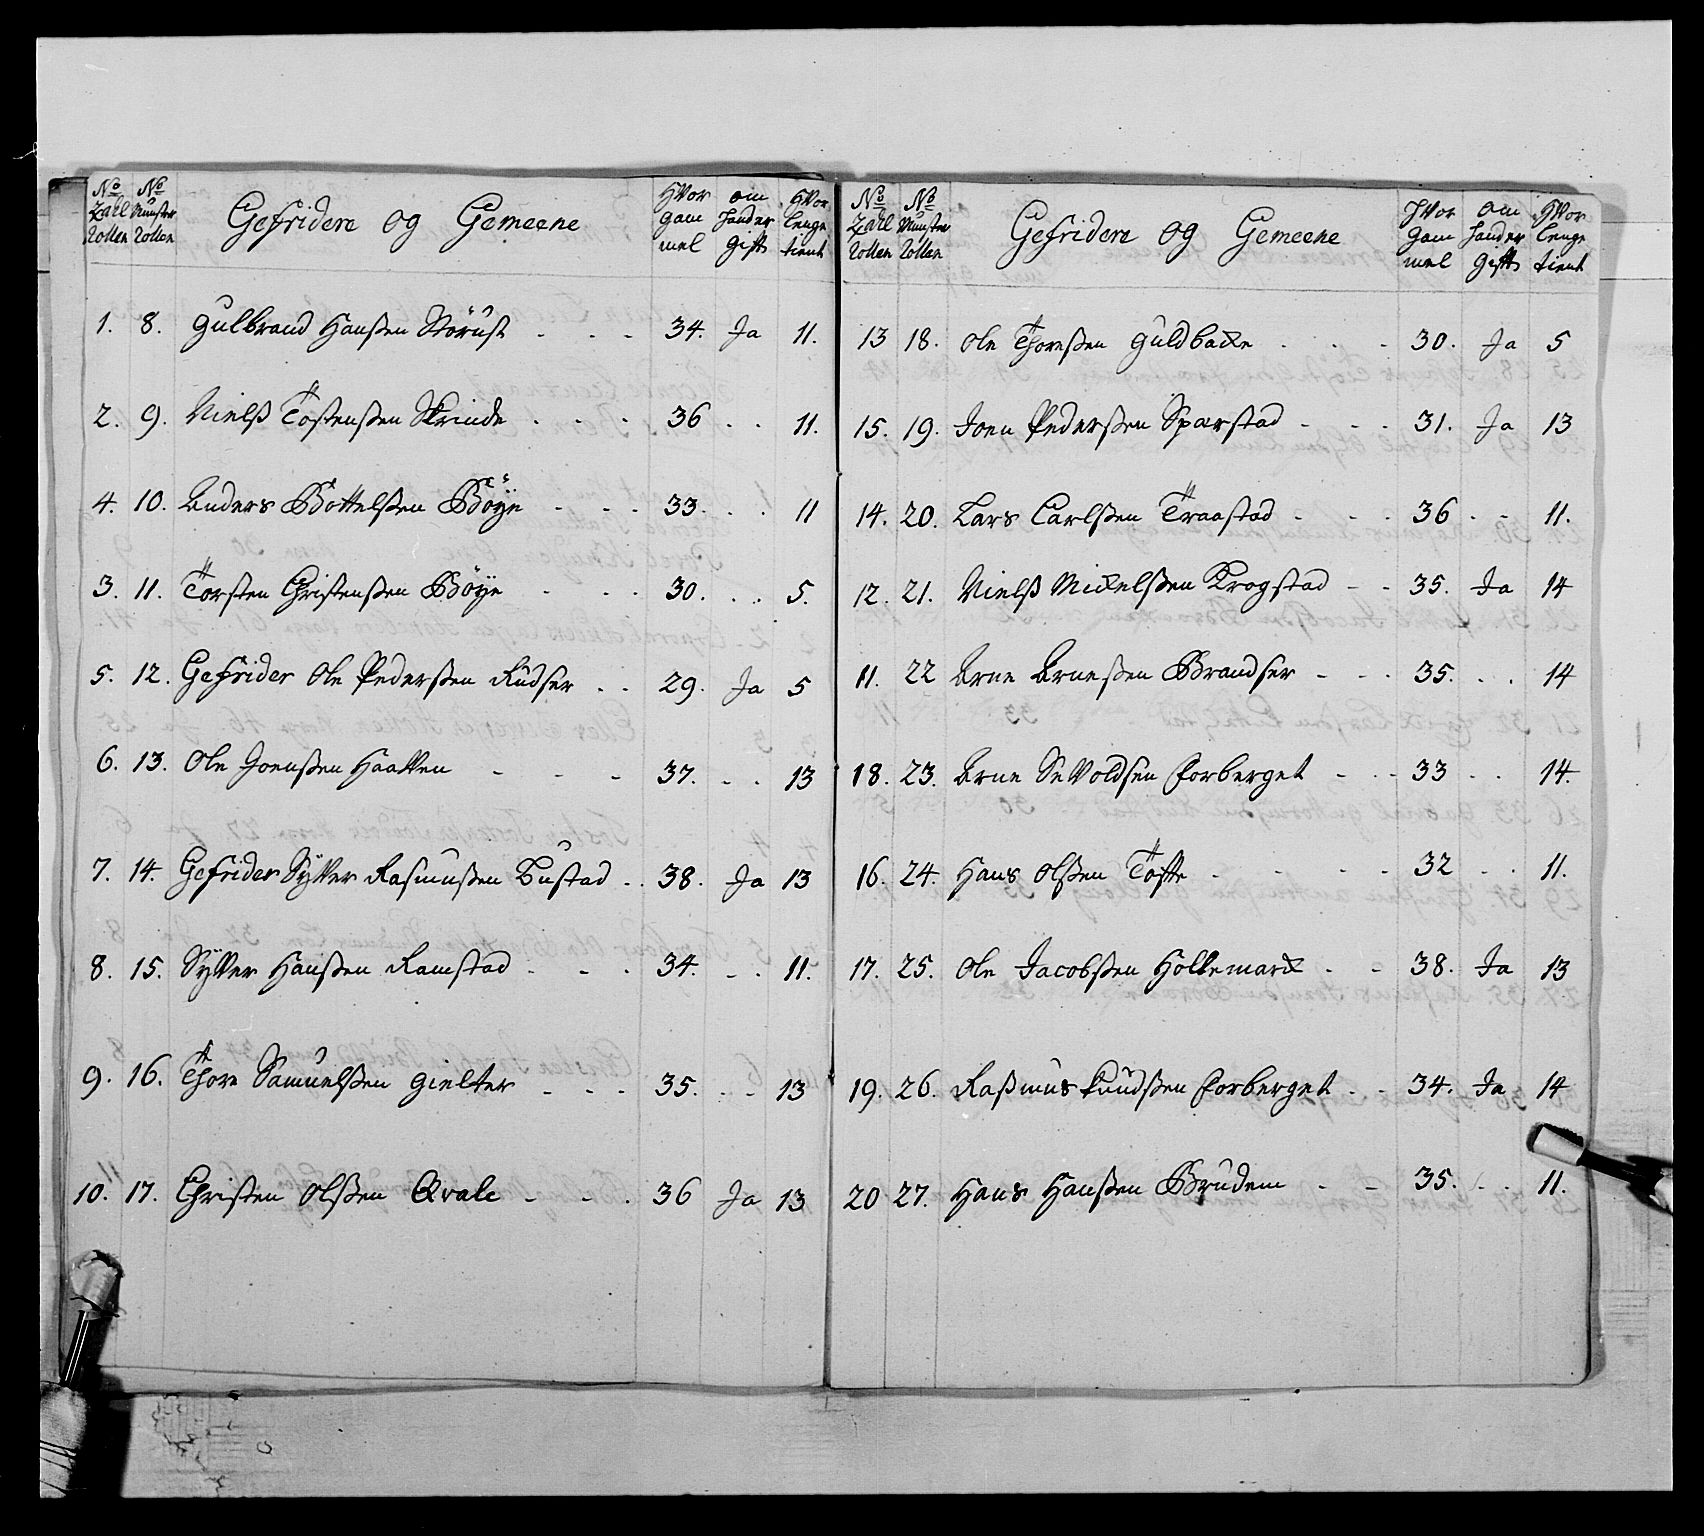 No Zahl Rollen No Munster Rollen Gefridere og Gemeene Hvor gammel om hand er gift Hvor lenge tient
1. 8. Gulbrand Hanßen Nörust - - - 34. Ja 11.
2. 9. Nielß Tostenßen Skrinde - - - 36 - - 11.
4. 10. Anders Bottelßen Böye - - - 33. - - 11
3. 11. Torsten Christenßen Böye - - - 30. - - 5.
5. 12. Gefrider Ole Pederßen Rudser - - 29. Ja 5
6. 13. Ole Joenßen Haatten - - - 37. - - 13
7. 14. Gefrider Syver Rasmußen Bustad - - 38. Ja 13
8. 15. Syver Hanßen Ramstad - - - 34. - - 11.
9. 16. Thore Samuelßen Gielter - - - 35. - - 13
10. 17. Christen Olßen Qvale - - - 36 Ja 13
No Zahl Rollen No Munster Rollen Gefridere og Gemeene Hvor gammel om hand er gift Hvor lenge tient
13 18. Ole Thoreßen Guldbacke - - - 30. Ja 5
15. 19. Joen Pederßen Sparstad - - - 31. Ja 13
14. 20. Lars Carlßen Traastad - - - 36 - - 11.
12. 21. Nielß Mickelßen Krogstad - - 35. Ja 14
11. 22 Arne Arneßen Brandser - - - 35. - - 14
18. 23. Arne Sevoldsen Forberget - - - 33 - - 14.
16. 24. Hans Olßen Tofte - - - - 32 - - 11.
17. 25. Ole Jacobßen Hollemarck - - 38. Ja 13
19. 26. Raßmus Knudßen Forberget - - 34. Ja 14
20 27. Hans Hanßen Brudem - - 35. - - 11.